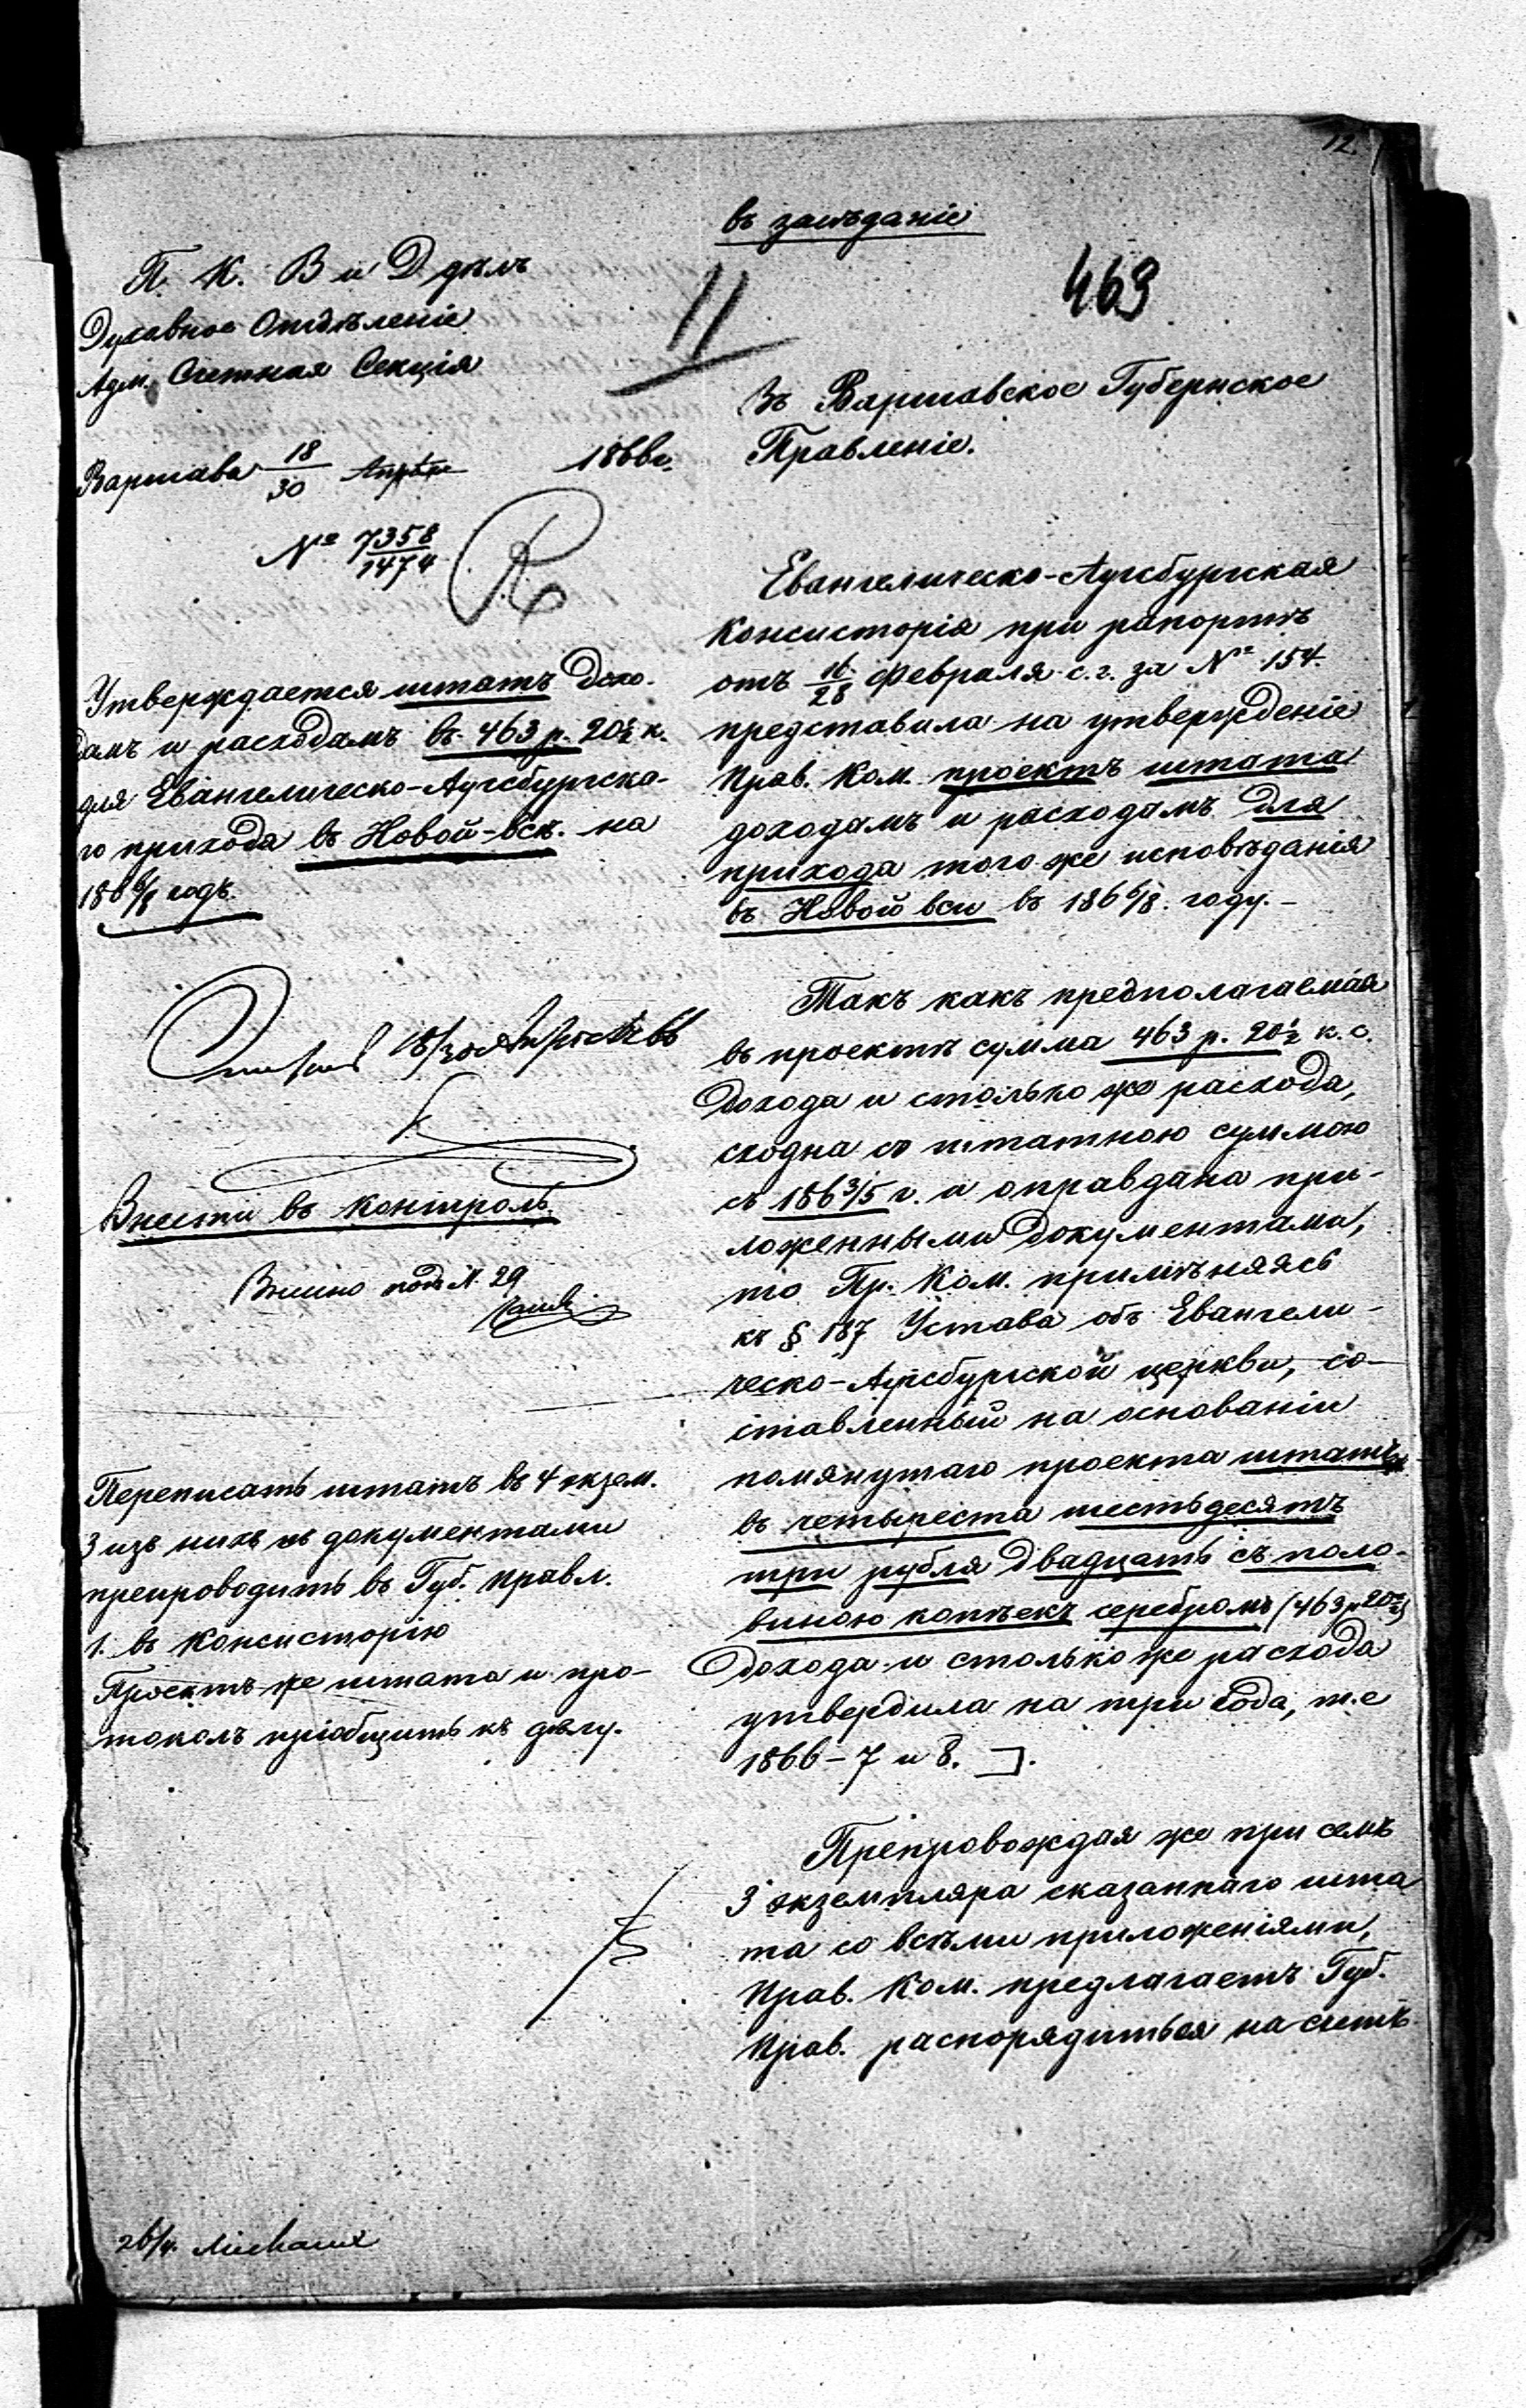 12.
въ засѣданіе
П. К. В и Д дѣлъ
Духовное Отдѣленіе
Адм. Счетная Секція
Варшава 18/30 Апрѣля 1866 г.
№ 7358/1474
Утверждается штатъ дохо-
дамъ и расходамъ въ 463 р. 20½ к.
для Евангелическо-Аугсбургска-
го прихода въ Новой-вси. на
186 6/8 годъ.
18/30 Апрѣля 66
Внести въ контроль
Внесено подъ N. 29
Переписать штатъ въ 4 экзем.
3 изъ нихъ съ документами
препроводить въ Губ. Правл.
1. въ Консисторію
Проектъ же штата и про-
токолъ пріобщить къ дѣлу.
26/4.
11
463
Въ Варшавское Губернское
Правленіе.
Евангелическо-Аугсбургская
Консисторія при рапортѣ
отъ 16/28 Февраля с. г. за № 154.
представила на утвержденіе
Прав. Ком. проектъ штата
доходамъ и расходамъ для
прихода того же исповѣданія
въ Новой вси въ 186 6/8. году. –
Такъ какъ предполагаемая
въ проектѣ сумма 463 р. 20½ к. с.
дохода и столько же расхода,
сходна со штатною суммою
съ 186 3/5 г. и оправдана при-
ложенными документами,
то Пр. Ком. примѣняясь
къ § 187 Устава объ Евангели-
ческо-Аугсбургской церкви, со-
ставленный на основаніи
помянутаго проекта штатъ
въ четыреста шестьдесятъ
три рубля двадцать съ поло-
виною копѣекъ серебромъ (463 р. 20½)
дохода и столько же расхода
утвердила на три года, т. е
1866 – 7 и 8.
Препровождая же при семъ
3 экземпляра сказаннаго шта
та со всѣми приложеніями,
Прав. Ком. предлагаетъ Губ.
Прав. распорядиться на счетъ